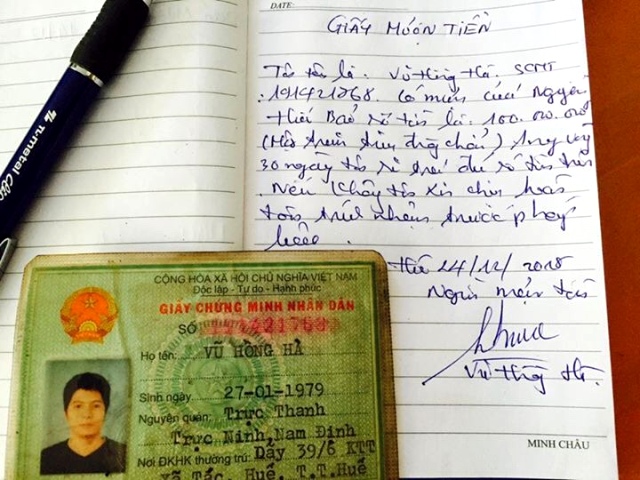 DATE:
GIẤY MƯỢN TIỀN
Tôi tên là. Vũ Hồng Hà. SCMT
191421768. Có mượn của Nguyễn
Thái Bảo số tiền là. 100.000.000
(Một trăm triệu đồng chẵn) trong vòng
30 ngày tôi sẽ trả đủ số tiền trên
Nếu không tôi xin chịu hoàn
toàn trách nhiệm trước pháp
luật.
Huế 24/12/2018
Người mượn tiền
Vũ Hồng Hà.
MINH CHÂU
CỘNG HÒA XÃ HỘI CHỦ NGHĨA VIỆT NAM
Độc lập - Tự do - Hạnh phúc
GIẤY CHỨNG MINH NHÂN DÂN
SỐ 191421768
Họ tên: VŨ HỒNG HÀ
Sinh ngày 27-01-1979
Nguyên quán: Trực Thanh
Trực Ninh, Nam Định
Nơi ĐKHK thường trú: Dãy 39/6 KTT
Xã Tắc, Huế, T.T.Huế
π-metal